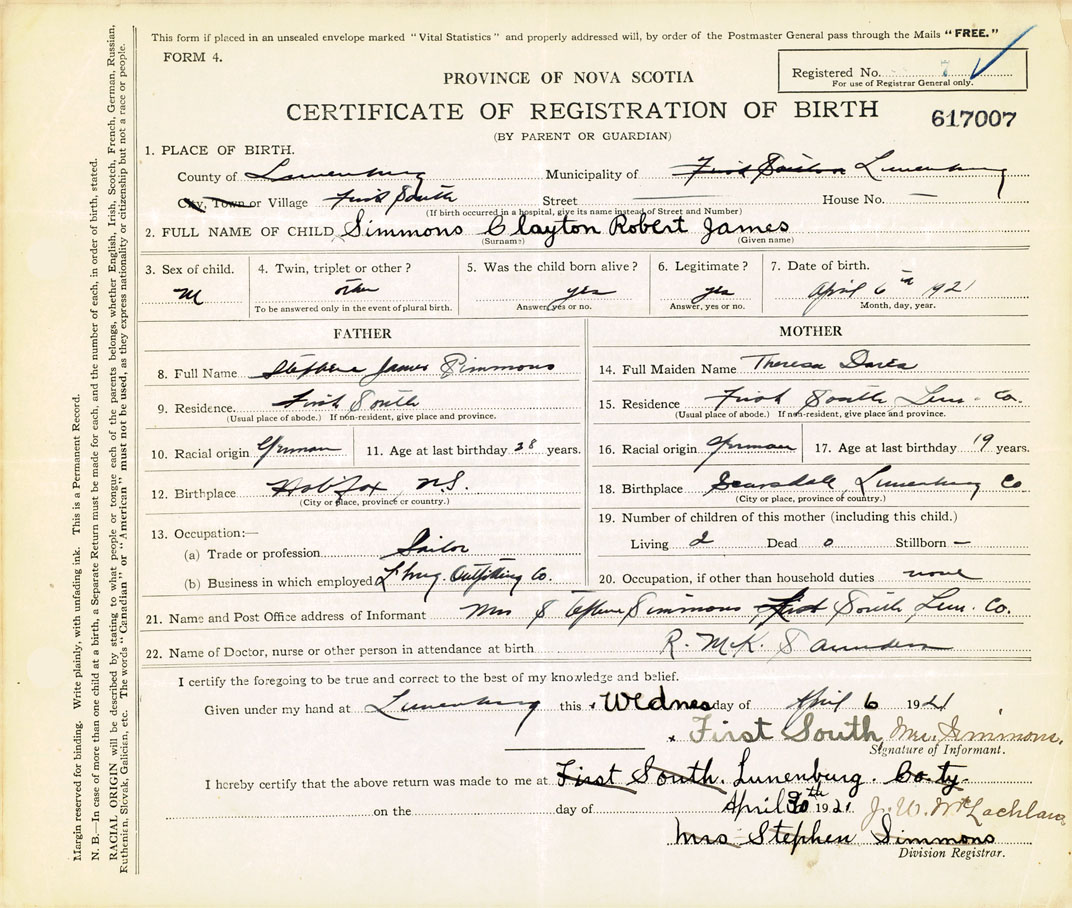 This form if placed in an unsealed envelope marked "Vital Statistics" and properly addressed will, by order of the Postmaster General pass through the Mails "FREE."
FORM 4.
Registered No. 7
For use of Registrar General only.
PROVINCE OF NOVA SCOTIA
CERTIFICATE OF REGISTRATION OF BIRTH
617007
(BY PARENT OR GUARDIAN)
1. PLACE OF BIRTH.
County of Lunenburg Municipality of Lunenburg
City, Town or Village First South Street House No.
(If birth occurred in a hospital, give its name instead of Street and Number)
2. FULL NAME OF CHILD Simmons Clayton Robert James
(Surname) (Given name)
3. Sex of child. 4. Twin, triplet or other? 5. Was the child born alive? 6. Legitimate? 7. Date of birth.
M other yes yes April 6th 1921
To be answered only in the event of plural birth. Answer, yes or no. Answer, yes or no. Month, day, year.
FATHER
8. Full Name Stephen James Simmons
9. Residence First South
(Usual place of abode.) If non-resident, give place and province.
10. Racial origin German 11. Age at last birthday 28 years.
12. Birthplace Halifax, N.S.
(City or place, province or country.)
13. Occupation:—
(a) Trade or profession Sailor
(b) Business in which employed Outfitting Co.
MOTHER
14. Full Maiden Name Theresa
15. Residence First South Lun. Co.
(Usual place of abode.) If non-resident, give place and province.
16. Racial origin German 17. Age at last birthday 19 years.
18. Birthplace Scarsdale, Lunenburg Co
(City or place, province or country.)
19. Number of children of this mother (including this child.)
Living 2 Dead 0 Stillborn —
20. Occupation, if other than household duties none
21. Name and Post Office address of Informant Mrs Stephen Simmons First South, Lun. Co.
22. Name of Doctor, nurse or other person in attendance at birth R. McK. Saunders
I certify the foregoing to be true and correct to the best of my knowledge and belief.
Given under my hand at Lunenburg this Wednes day of April 6 1921
x First South, Mrs. Simmons.
Signature of Informant.
I hereby certify that the above return was made to me at First South. Lunenburg. Co ty.
on the day of April 30th 1921 J. W. McLachlan
Mrs Stephen Simmons
Division Registrar.
Margin reserved for binding. Write plainly, with unfading ink. This is a Permanent Record.
N. B.—In case of more than one child at a birth, a Separate Return must be made for each, and the number of each, in order of birth, stated.
RACIAL ORIGIN will be described by stating to what people or tongue each of the parents belongs, whether English, Irish, Scotch, French, German, Russian,
Ruthenian, Slovak, Galician, etc. The words "Canadian" or "American" must not be used, as they express nationality or citizenship but not a race or people.